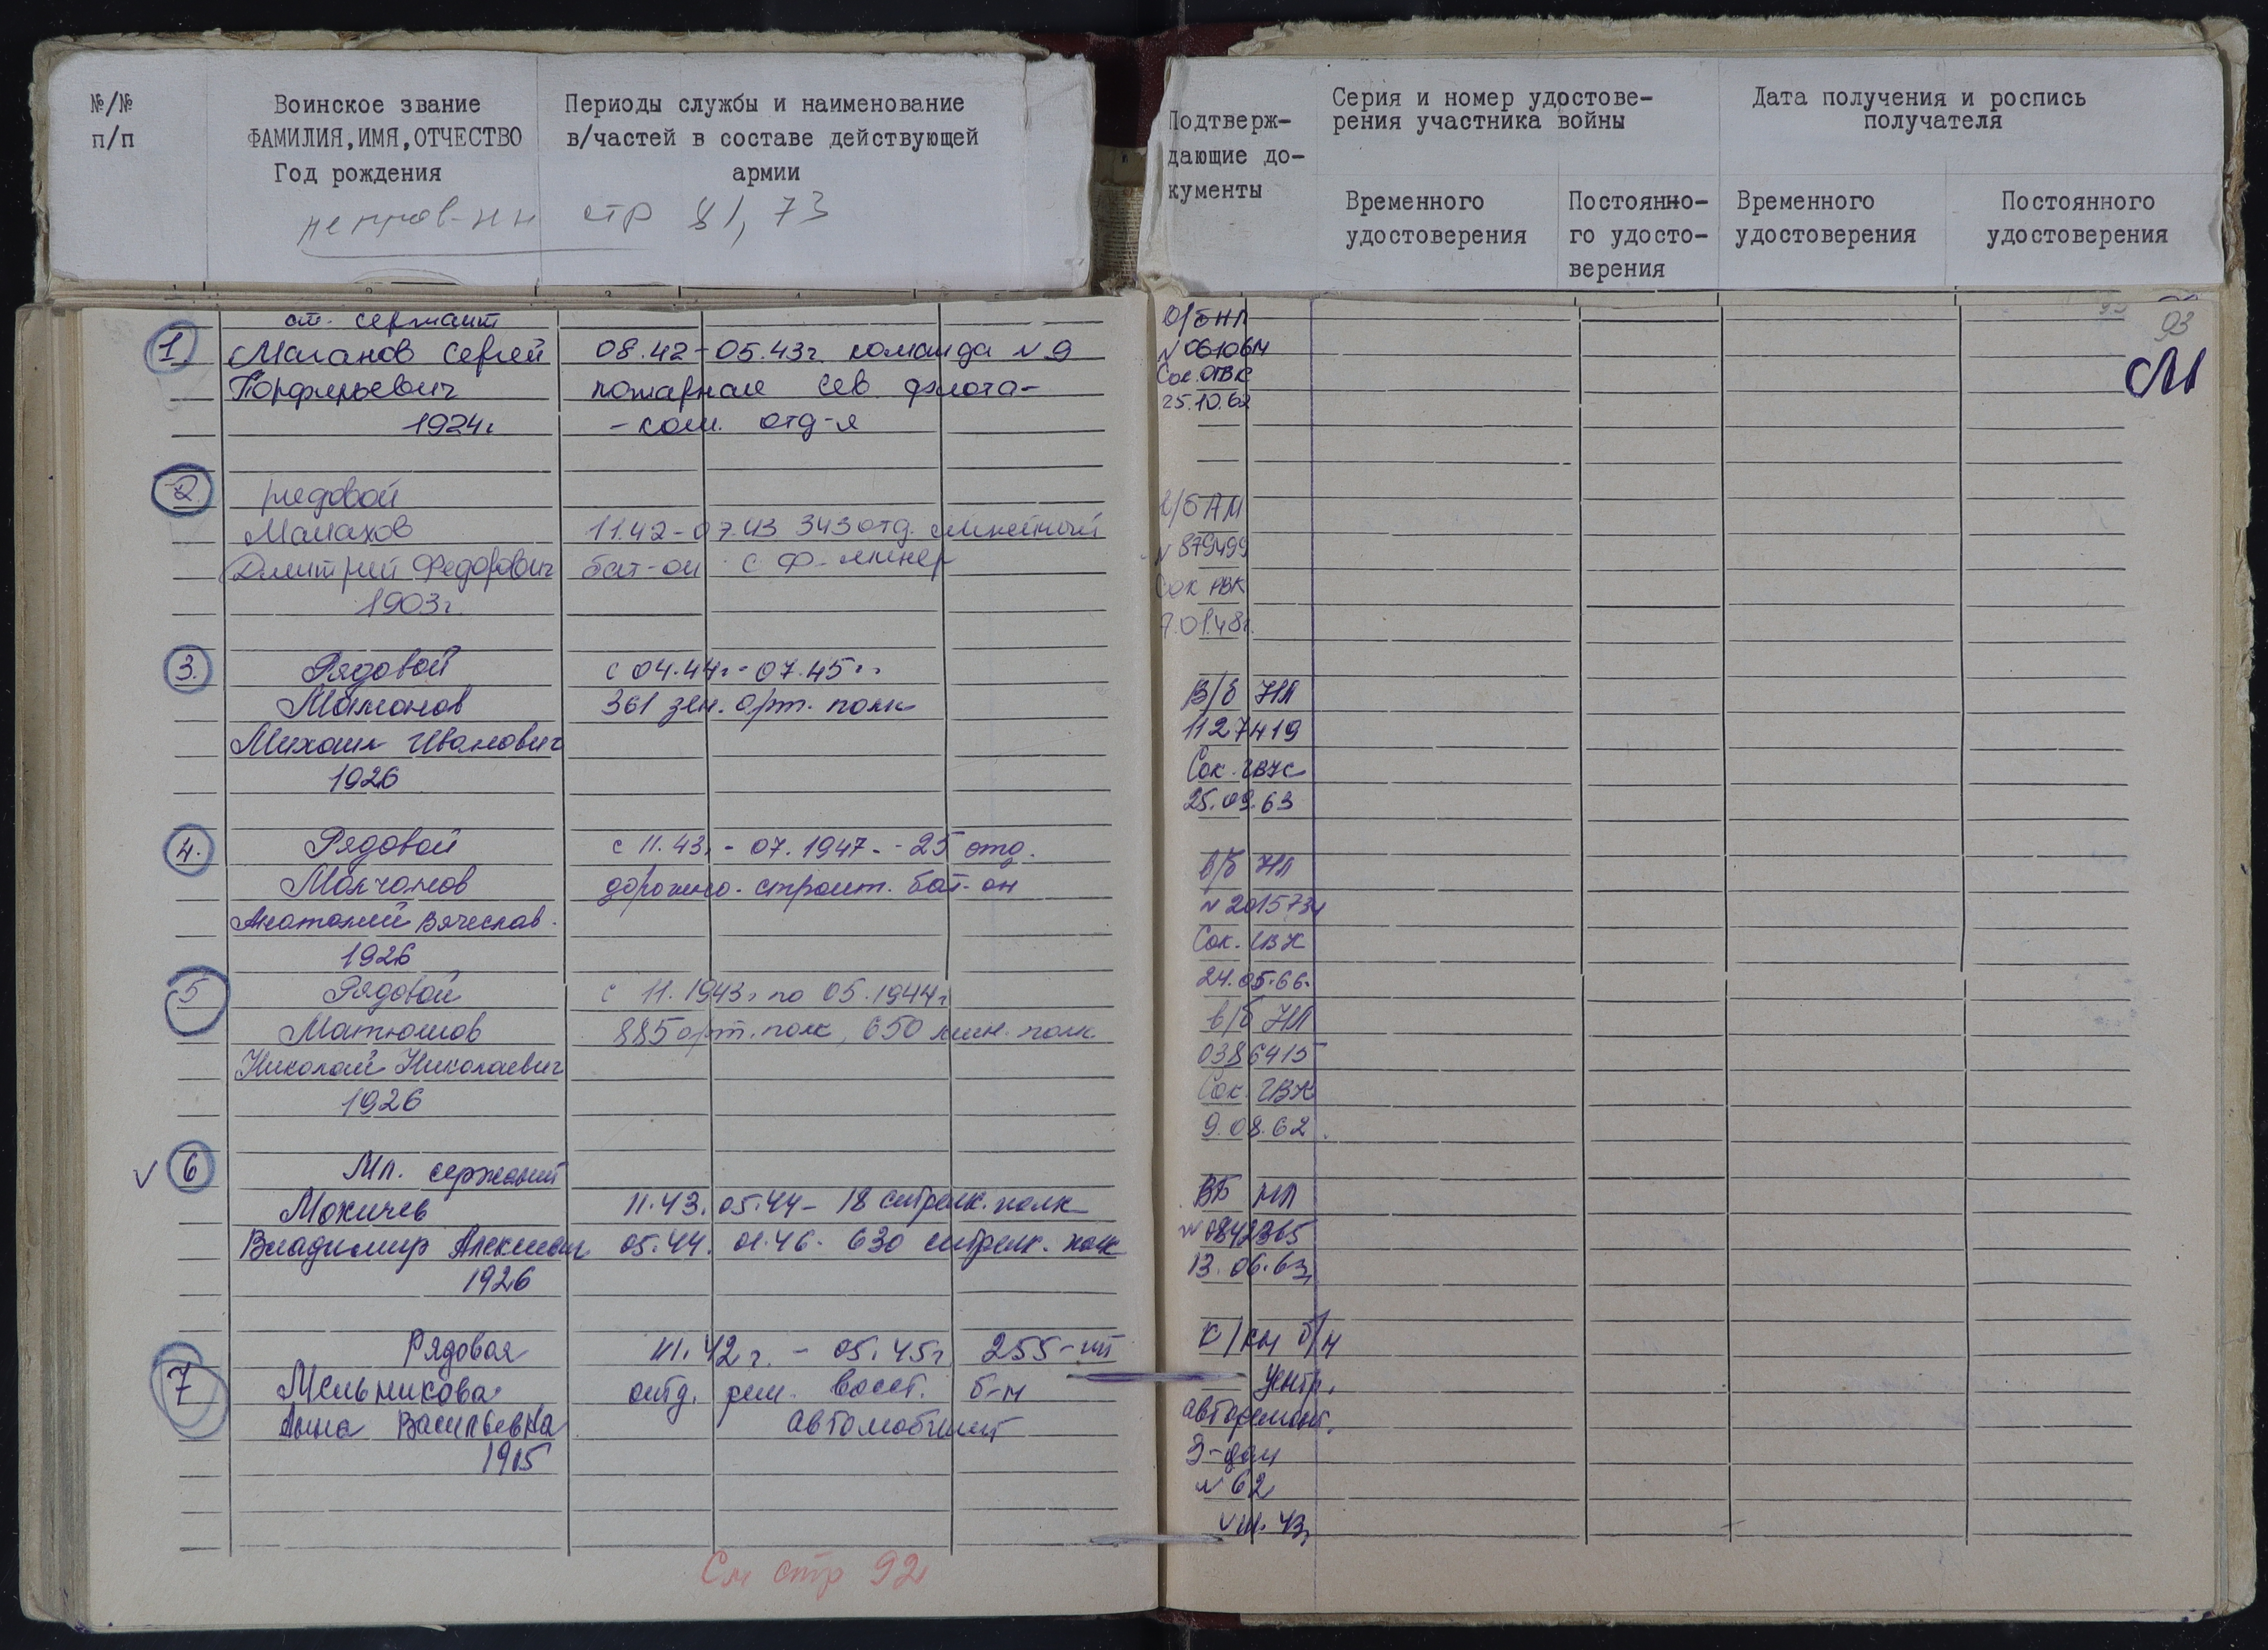 №/№
п/п
Воинское звание
ФАМИЛИЯ,ИМЯ,ОТЧЕСТВО
Год рождения
Периоды службы и наименование
в/частей в составе действующей
армии
стр 81, 73
Подтверж-
дающие до-
кументы
Серия и номер удостове-
рения участника войны
Временного
удостоверения
Постоянно-
го удосто-
верения
Дата получения и роспись
получателя
Временного
удостоверения
Постоянного
удостоверения
1.
ст. сержант
Маганов Сергей
Порфирьевич
1924г
08.42-05.43г. команда №9
пожарная Сев. флота-
- ком. отд-я
2.
рядовой
Малахов
Дмитрий Федорович
1903г.
11.42-07.43 343 отд. линейный
бат-он С.Ф.
3.
Рядовой
Мамонов
Михаил Иванович
1926
с 04.44г - 07.45г.
361 зен. арт. полк
4.
Рядовой
Молчанов
Анатолий Вячеслав.
1926
с 11.43. - 07.1947. - 25 отд.
дорожно. строит. бат-он
5
Рядовой
Матюшов
Николай Николаевич
1926
с 11.1943г по 05.1944г
885 арт. полк, 650 полк
6
Мл. сержант
Мокичев
Владимир
1926
11.43. 05.44- 18 стрелк. полк
05.44. 01.46. 630 стрелк. полк
7
Рядовая
Мельникова
Анна Васильевна
1915
III.42г. - 05.45г 255-ый
отд. рем. восст. б-н
автомобилист
См стр 92
93
М
В/б НЛ
Сок. ОГВК
25.10.62
в/б АМ
№ 879499
Сок РВК
7.01.48г.
В/б НЛ
1127419
Сок. ГВК
25.09.63
в/б НЛ
№ 2015734
Сок. ГВК
24.05.66.
в/б НЛ
0386415
Сок. ГВК
9.08.62.
ВБ НЛ
№ 0842365
13.06.63
К/кн б/н
Центр.
авторемонт.
З-дам
№ 62
VIII.43г